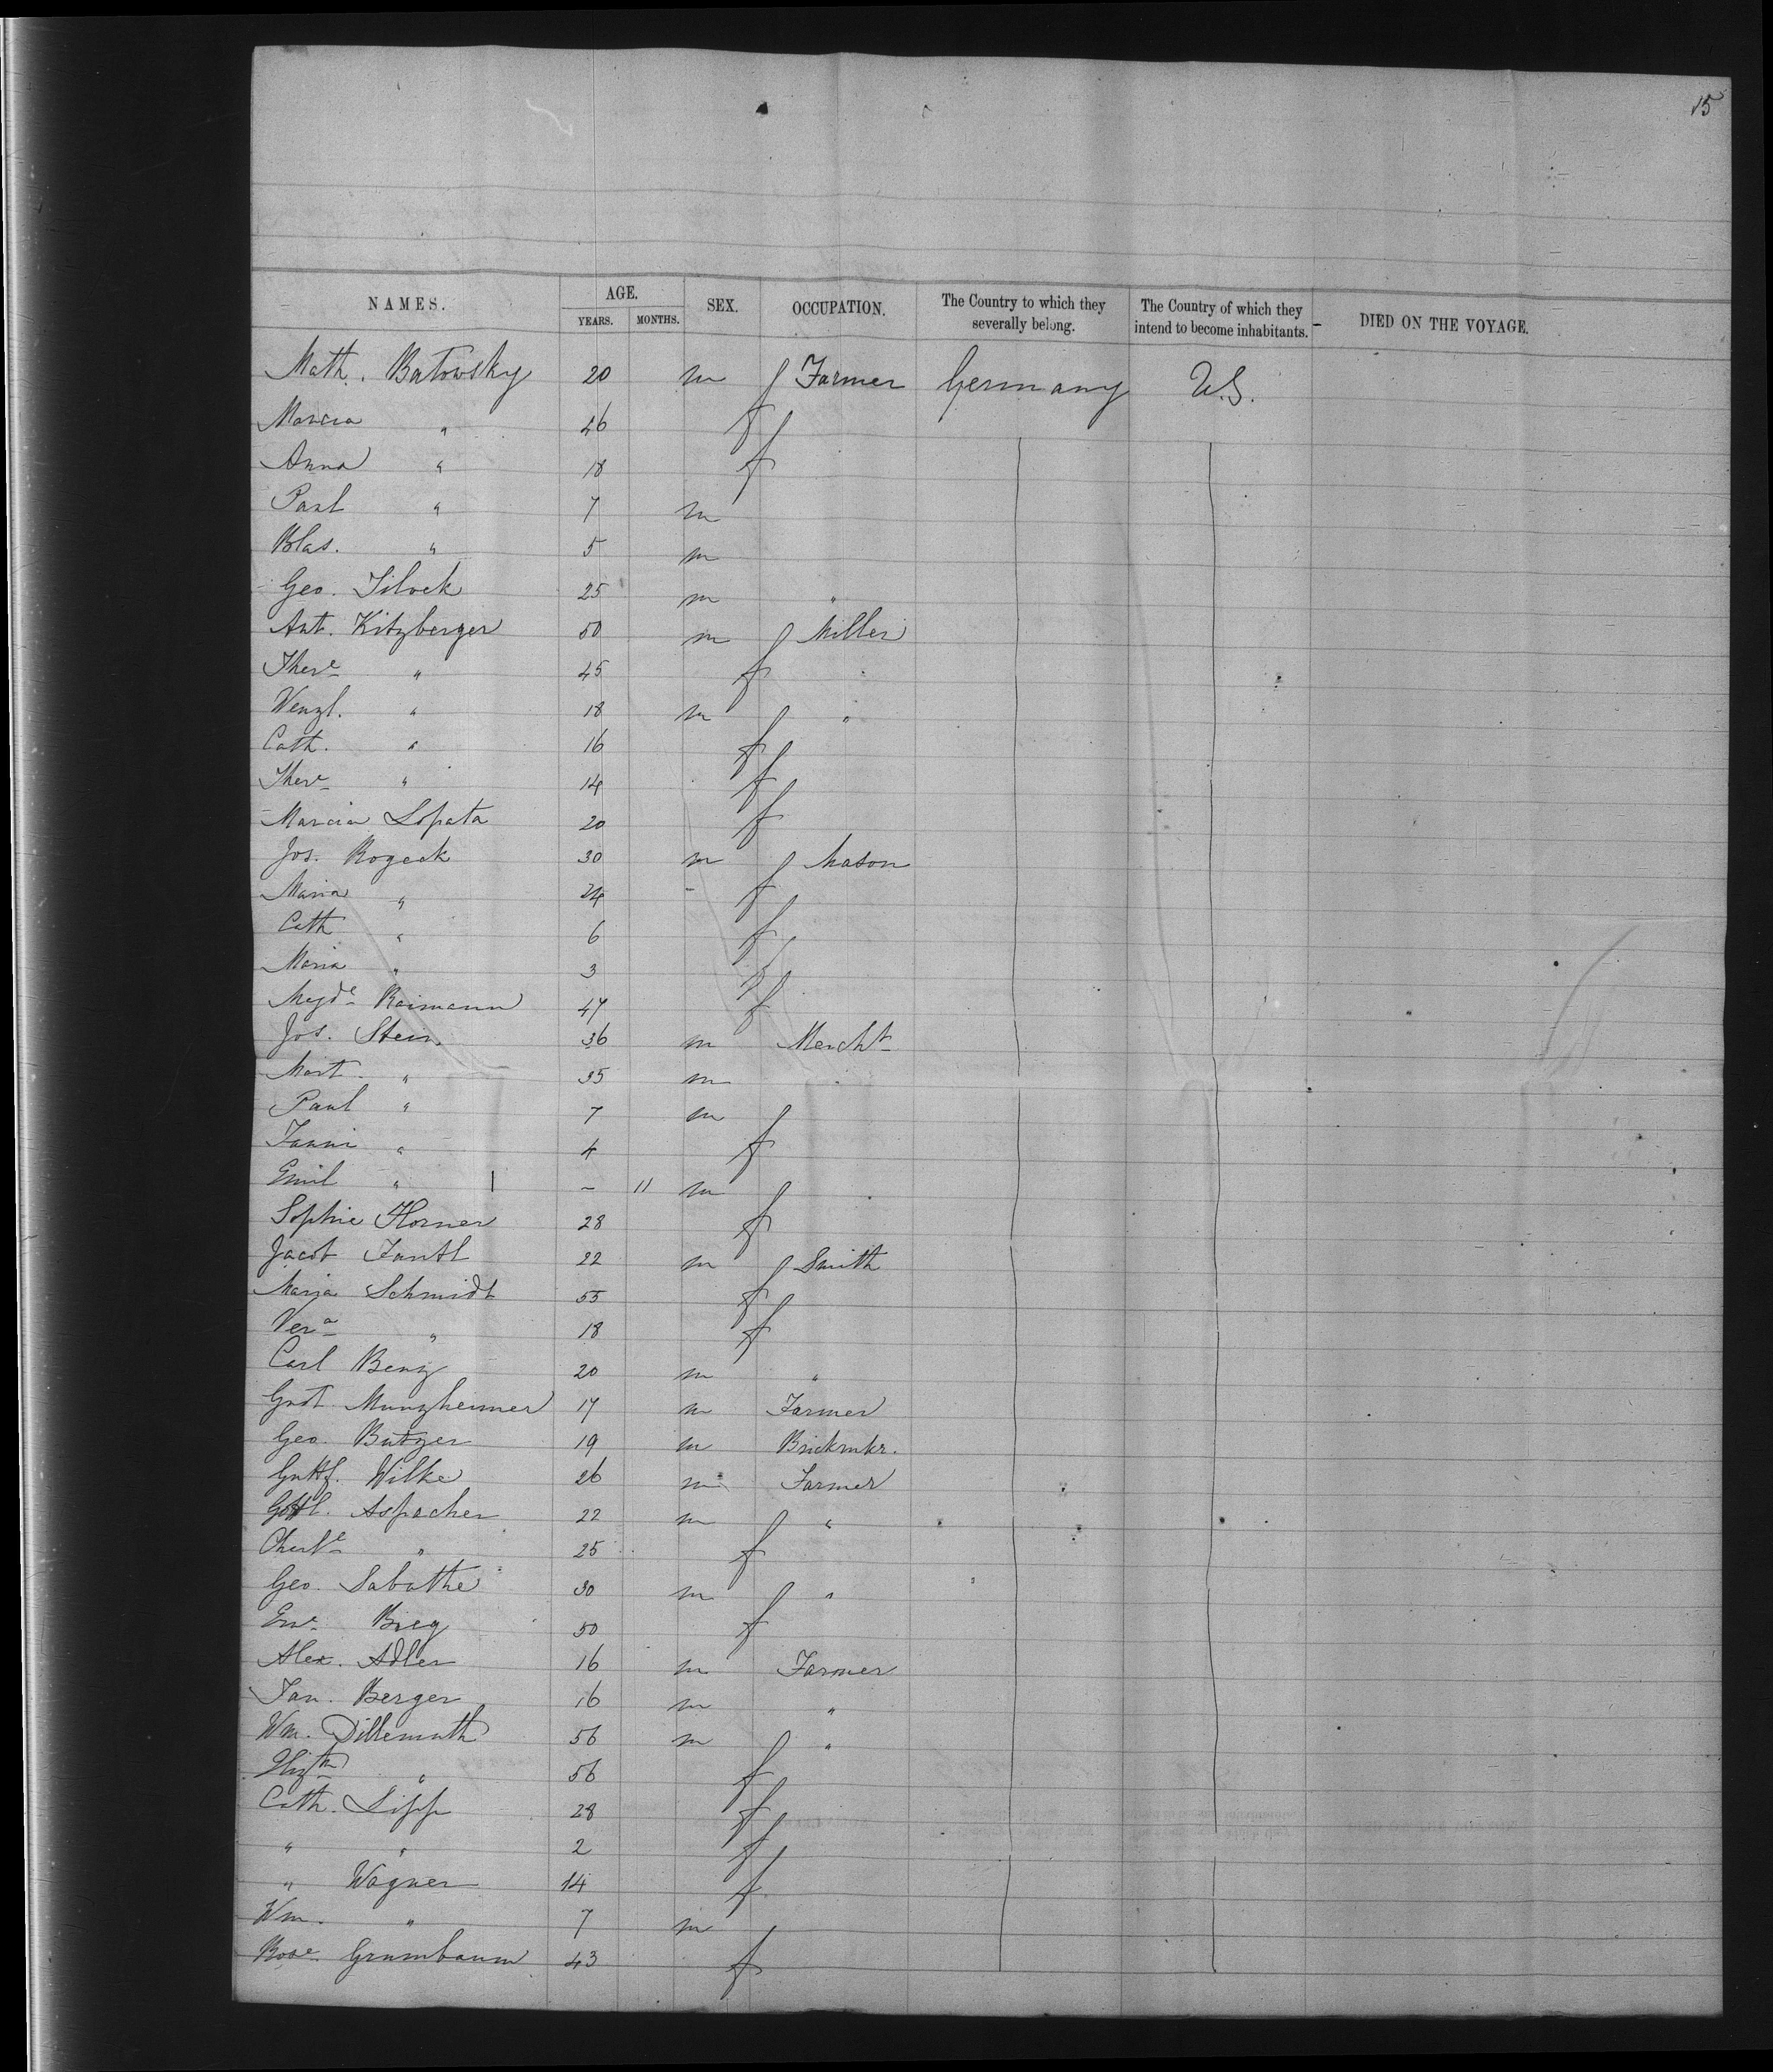 15
NAMES. AGE. SEX. OCCUPATION. The Country to which they severally belong. The Country of which they intend to become inhabitants. DIED ON THE VOYAGE.
YEARS. MONTHS.
Math. Batowsky 20 m Farmer Germany U.S.
Marcia " 46 f
Anna " 18 f
Paul " 7 m
Blas. " 5 m
Geo. 25 m "
Ant. Kitzberger 50 m Miller
There " 45 f
Wenzl. " 18 m "
Cath. " 16 f
There " 14 f
Marcia Lopata 20 f
Jos. Rogeck 30 m Mason
Maria " 24 f
Cath " 6 f
Maria " 3 f
Magde Raimann 47 f
Jos. Stein 36 m Mercht
Mart. " 35 m
Paul " 7 m
Fanni " 4 f
Emil " - 11 m
Sophie Horner 28 f
Jacob Fantl 22 m Smith
Maria Schmidt 55 f
Vera " 18 f
Carl Benz 20 m "
Gust. Munzheimer 17 m Farmer
Geo. Butzer 19 m Brickmkr.
Gottf. Wilke 26 m Farmer
Gottl. Aspacher 22 m "
Charlte " 25 f
Geo. Sabathe 30 m "
Bieg 50 f
Alex. Adler 16 m Farmer
Jan. Berger 16 m "
Wm. Dillemuth 56 m "
Elizth " 56 f
Cath. Lipp 28 f
" " 2 f
" Wagner 14 f
Wm. " 7 m
Rose Grumbaum 43 f